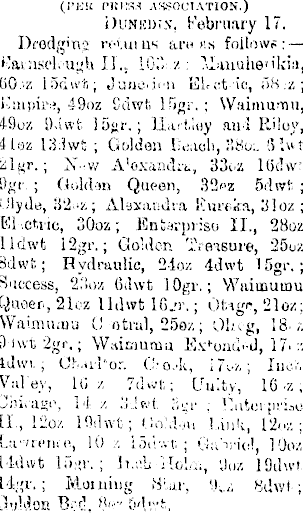 (PER PRESS ASSOCIATION.)
DUNEDIN, February 17.
Dredging returns are as follows:—
Earnscleugh II., 103oz; Manuherikia,
60oz 15dwt; Junction Electric, 58oz;
Empire, 49oz 9dwt 15gr.; Waimumu,
49oz 9dwt 15gr.; Hartley and Riley,
41oz 13dwt; Golden Beach, 38oz
21gr.; New Alexandra, 33oz 16dwt
9gr.; Golden Queen, 32oz 5dwt;
Clyde, 32oz; Alexandra Eureka, 31oz;
Electric, 30oz; Enterprise II., 28oz
11dwt 12gr.; Golden Treasure, 25oz
8dwt; Hydraulic, 24oz 4dwt 15gr.;
Success, 23oz 6dwt 10gr.; Waimumu
Queen, 21oz 11dwt 16gr.; Otago, 21oz;
Waimumu Central, 25oz; Olrig, 18oz
9dwt 2gr.; Waimumu Extended, 17oz
4dwt; Charlton Creek, 17oz; Inch
Valley, 16oz 7dwt; Unity, 16oz;
Chicago, 14oz 3dwt 3gr; Enterprise
II., 12oz 19dwt; Golden Link, 12oz;
Lawrence, 10oz 15dwt; Gabriel, 10oz
14dwt 15gr.; Inch Holm, 9oz 19dwt
14gr.; Morning Star, 9oz 8dwt;
Golden Bed, 8oz 5dwt.